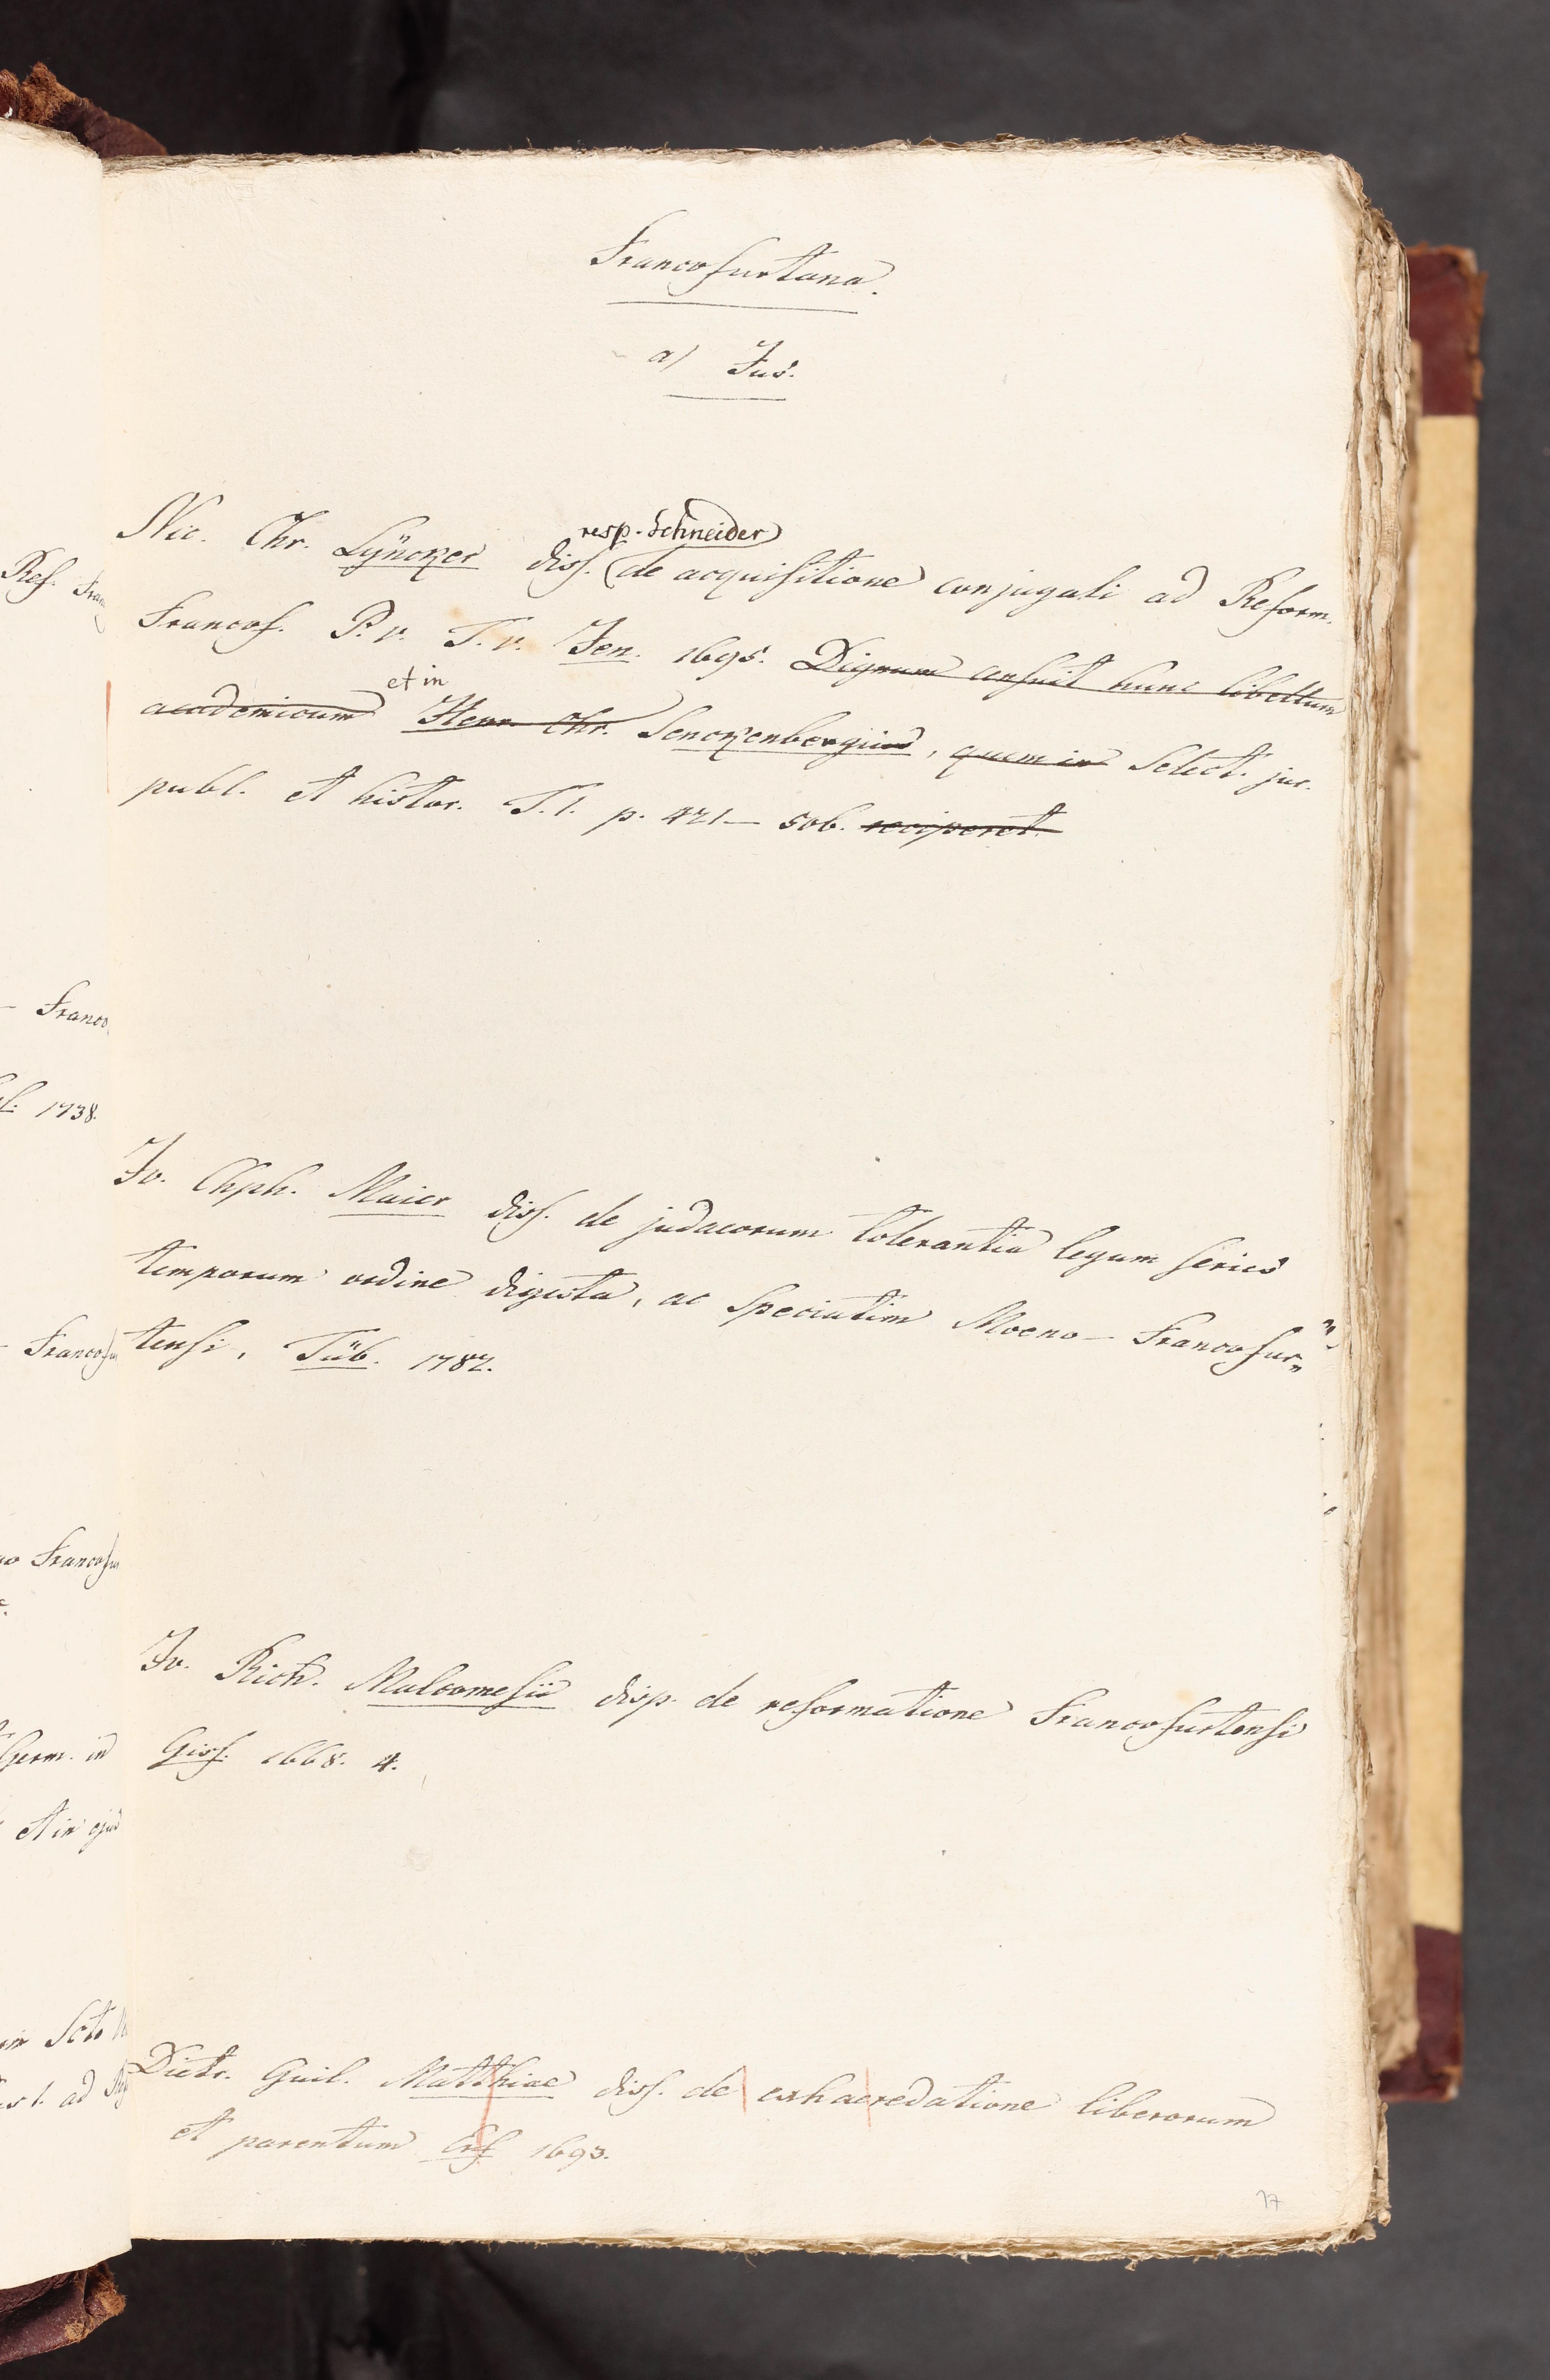 Francofurtana.
a) Jus.
resp. Schneider
Nic. Chr. Lÿncker diss. de acquisitione conjugali ad Reform.
Francof. P. v. T. v. Jen. 1695. Dignum censuit hunc libellum
et in
academicum Henr. Chr. Senckenbergius, quem in Select. jur.
publ. et histor. T. 1. p. 421 – 506. reciperet.
Jo. Chph. Maier diss. de judaeorum tolerantia legum series
temporum ordine digesta, ac speciatim Moeno – Francofur„
tensi, Tüb. 1782.
Jo. Rich. Malcomesii disp. de reformatione Francofurtensi
Giss. 1668. 4.
Dietr. Guil. Matthiae diss. de exhaeredatione liberorum
et parentum Erf. 1693.
17
Ref.
Franco
1738.
Francofu
Francofu
Germ. in
et in ejus
ad